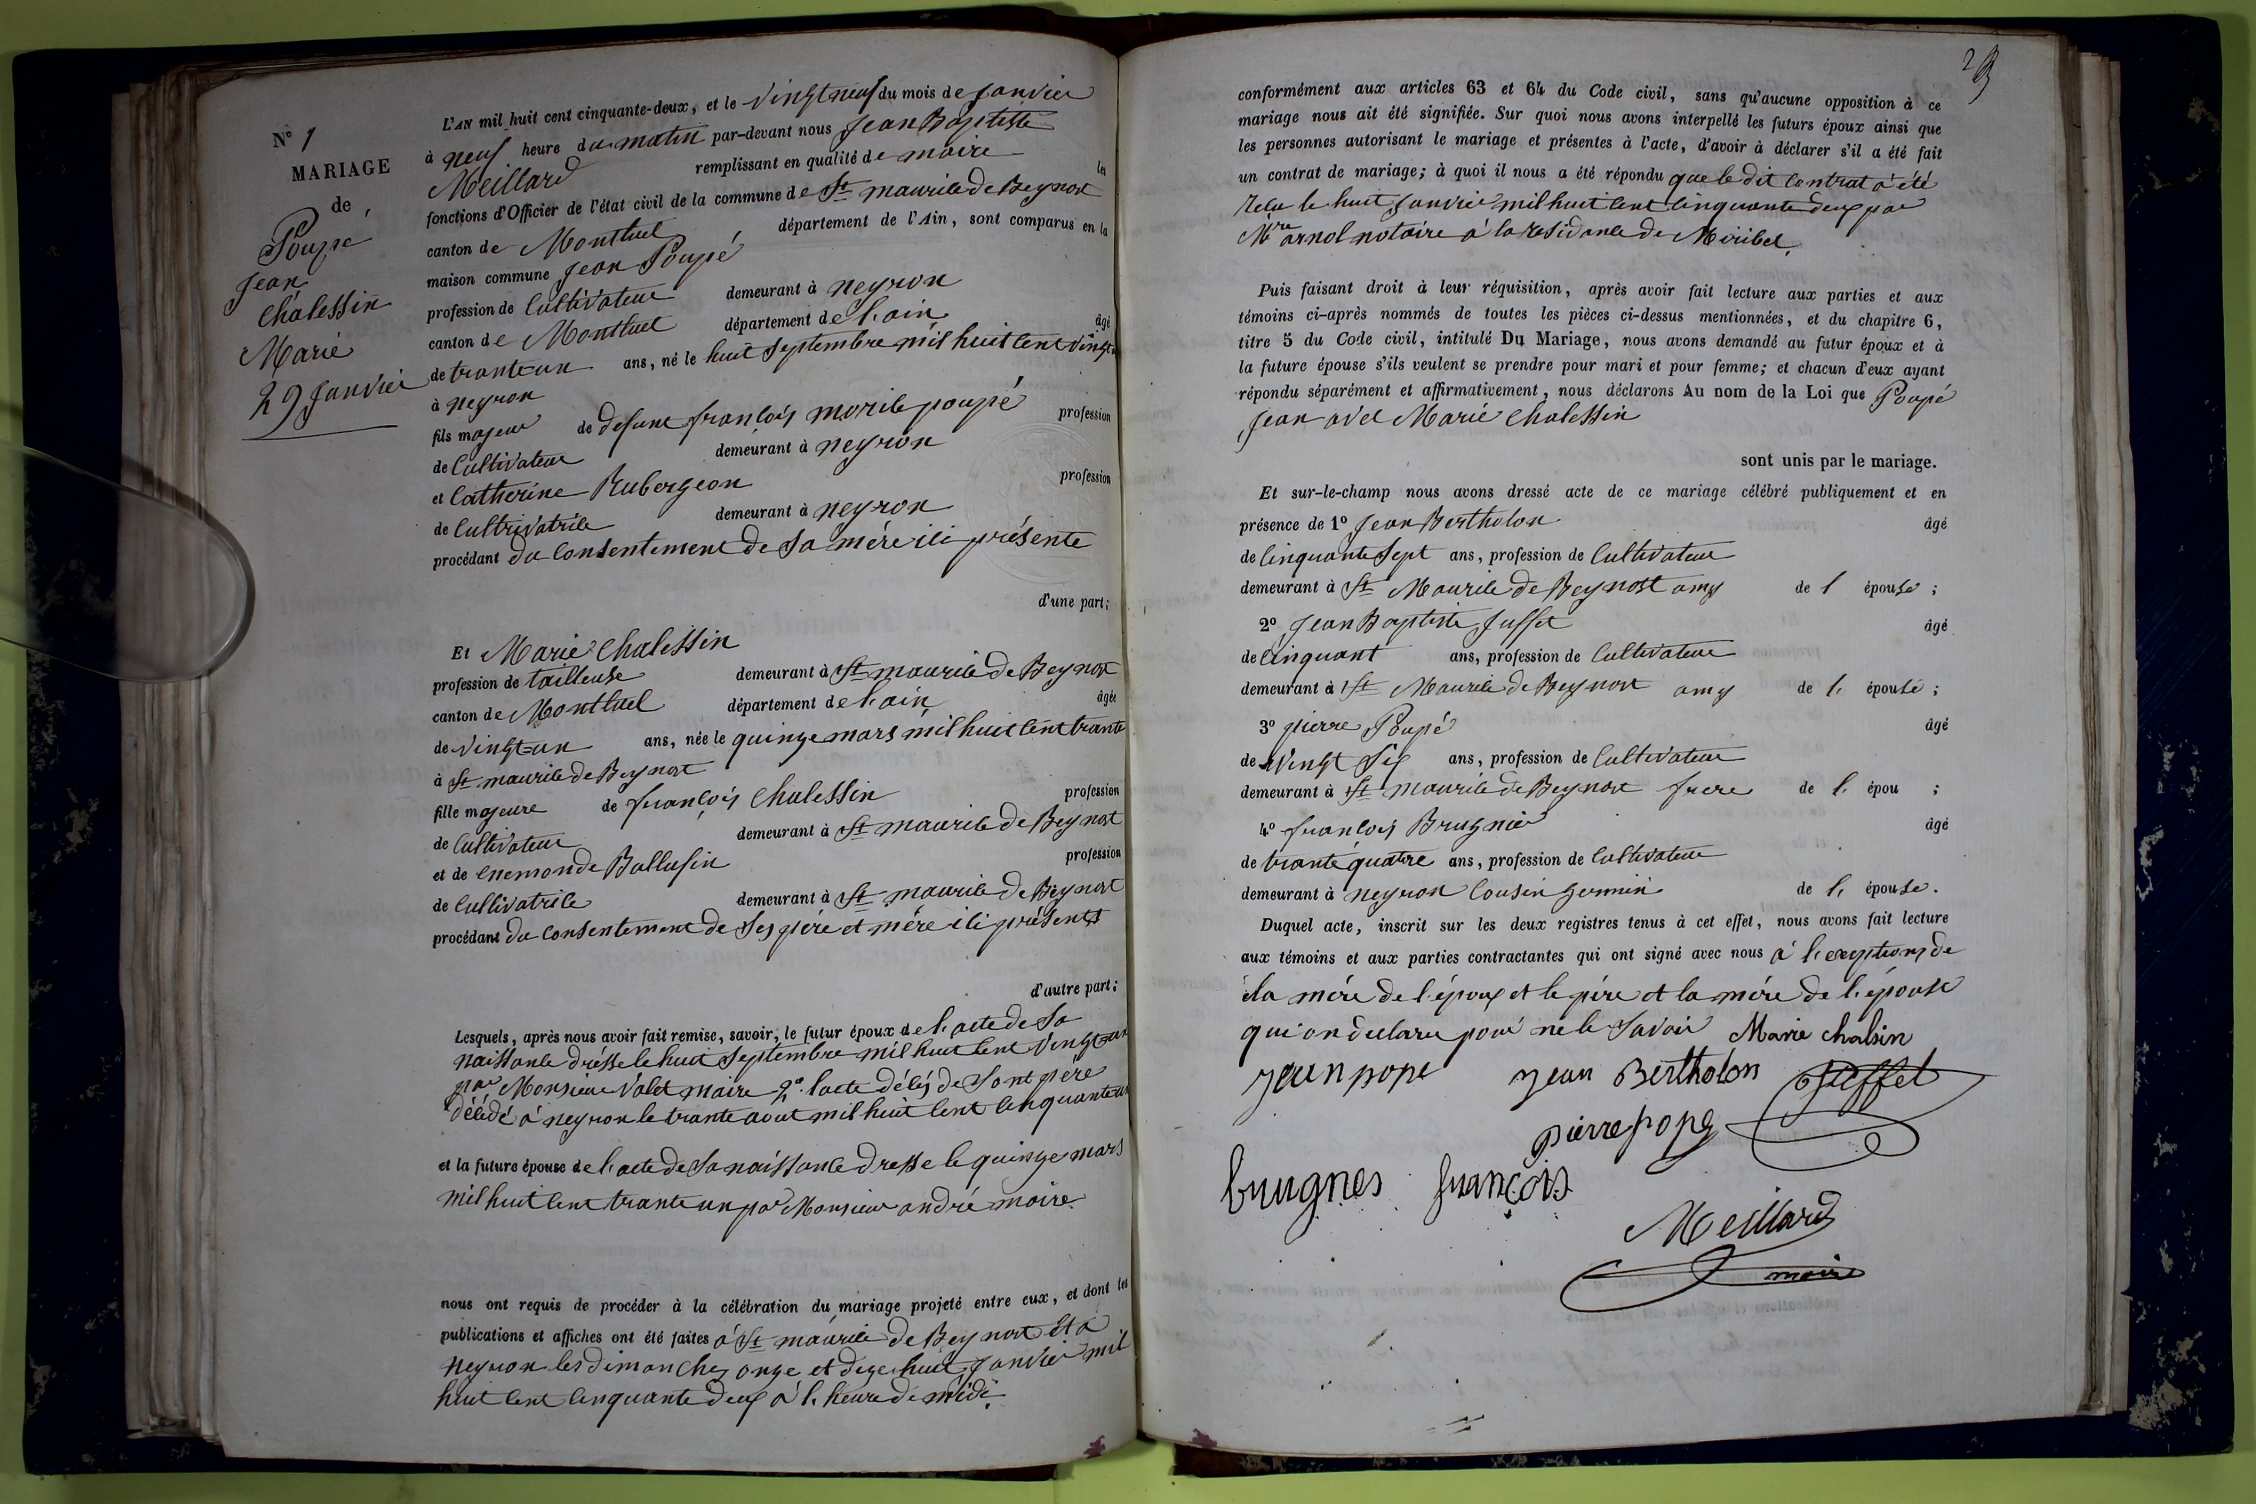 N° 1
MARIAGE
de
Poupé
Jean
Chalessin
Marie
29 Janvier
L'AN mil huit cent cinquante-deux, et le vingt neuf du mois de Janvier
à neuf heure du matin par-devant nous Jean Baptiste
Meillard remplissant en qualité de maire les
fonctions d'Officier de l'état civil de la commune de St maurice de Beynost
canton de Montluel département de l'Ain, sont comparus en la
maison commune Jean Poupé
profession de Cultivateur demeurant à neyron
canton de Montluel département de l'ain âgé
de trante un ans, né le huit Septembre mil huit cent vingt
à neyron
fils majeur de defunt françois morile poupé profession
de Cultivateur demeurant à neyron
et Catherine Rubergeon profession
de Cultrivatrile demeurant à neyron
procédant du Consentement de Sa mére ici présente
d'une part;
Et Marie Chalessin
profession de tailleuse demeurant à St maurice de Beynost
canton de Montluel département de l'ain âgée
de vingt-un ans, née le quinze mars mil huit cent trante
à St maurice de Beynost
fille majeure de françois Chalessin profession
de Cultivateur demeurant à St maurice de Beynost
et de enemonde Ballufin profession
de Cultivatrile demeurant à St maurice de Beynost
procédant du Consentement de Ses père et mére ici présents
d'autre part;
Lesquels, après nous avoir fait remise, savoir, le futur époux de l'acte de Sa
naissance drésse le huit Septembre mil huit cent vingt-un
par Monsieur Valet maire 2° l'acte délés de Sont pére
décédé à neyron le trante aout mil huit cent cinquante un
et la future épouse de l'acte de Sa naissance dresse le quinze mars
mil huit cent trante un par Monsieur andré maire
nous ont requis de procéder à la célébration du mariage projeté entre eux, et dont les
publications et affiches ont été faites à St maurice de Beynost et a
neyron les dimanches onze et dize huit Janvier mil
huit cent cinquante deux à l'heure de midi.
conformément aux articles 63 et 64 du Code civil, sans qu'aucune opposition à ce
mariage nous ait été signifiée. Sur quoi nous avons interpellé les futurs époux ainsi que
les personnes autorisant le mariage et présentes à l'acte, d'avoir à déclarer s'il a été fait
un contrat de mariage; à quoi il nous a été répondu que le dit Contrat a été
recu le huit Janvier mil huit cent cinquante deux par
Mtre arnol notaire à la residance de Miribel.
Puis faisant droit à leur réquisition, après avoir fait lecture aux parties et aux
témoins ci-après nommés de toutes les pièces ci-dessus mentionnées, et du chapitre 6,
titre 5 du Code civil, intitulé Du Mariage, nous avons demandé au futur époux et à
la future épouse s'ils veulent se prendre pour mari et pour femme; et chacun d'eux ayant
répondu séparément et affirmativement, nous déclarons Au nom de la Loi que Poupé
Jean avec Marie Chalessin
sont unis par le mariage.
Et sur-le-champ nous avons dressé acte de ce mariage célébré publiquement et en
présence de 1° Jean Bertholon âgé
de Cinquante Sept ans, profession de Cultivateur
demeurant à St Maurice de Beynost amy de l épouse;
2° Jean Baptiste Juffet âgé
de Cinquant ans, profession de Cultivateur
demeurant à St Maurice de Beynost amy de l, épouse;
3° pierre Poupé âgé
de vingt Six ans, profession de Cultivateur
demeurant à St maurice de Beynost frere de l, épou ;
4° françois Brugnier âgé
de trante quatre ans, profession de Cultivateur
demeurant à neyron Cousin germin de l, épouse.
Duquel acte, inscrit sur les deux registres tenus à cet effet, nous avons fait lecture
aux témoins et aux parties contractantes qui ont signé avec nous à l'exeptions de
la mére de l'époux et le père et la mére de l'épouse
qui on déclaré pour ne le Savoir Marie chalsin
jean pope jean Bertholon Juffet
pierre pope
brugnes françois
Meillard
maire